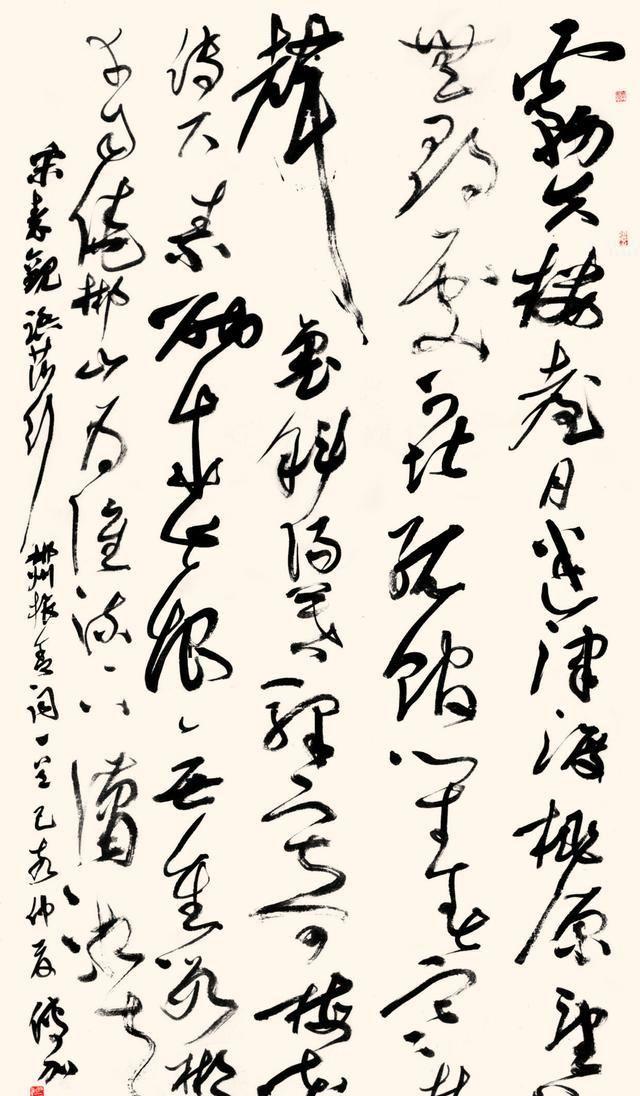 霧失樓臺月迷津渡桃原望
無尋處可堪孤館閉春寒杜
聲里斜陽暮驛寄梅花
傳尺素砌成此恨無重數郴
幸自繞郴山為誰流下瀟湘去
宋秦觀踏莎行 郴州旅舍詞一首己亥仲夏